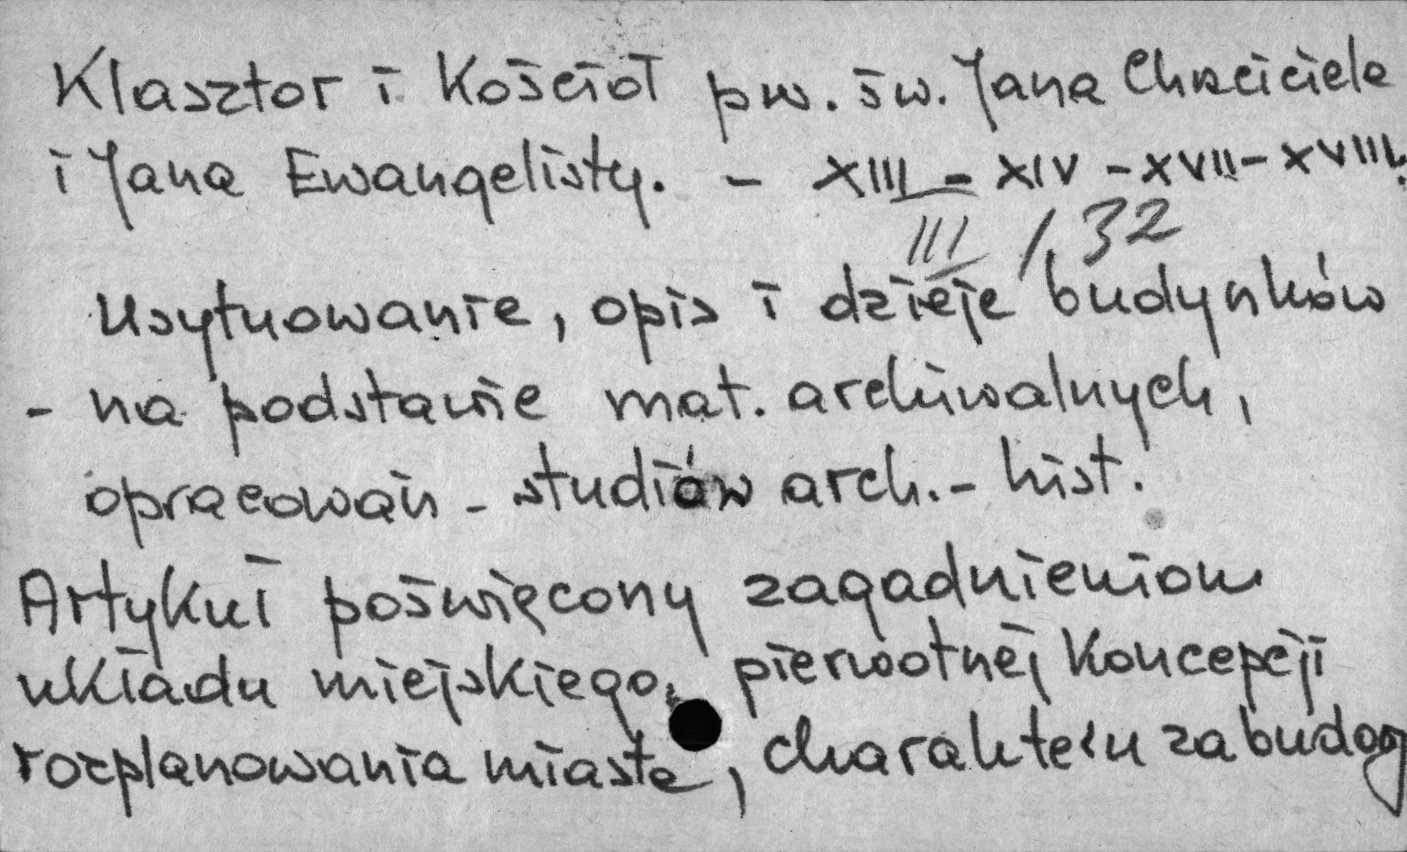 Klasztor i Kościoł pw. św. Jana Chrzciciela
i Jana Ewangelisty. - XIII - XIV - XVII - XVIII.
III / 32
Usytuowanie, opis i dzieje budynków
- na podstawie mat. archiwalnych,
opracowań - studiów arch. - hist.
Artykuł poświęcony zagadnieniom
układu miejskiego, pierwotnej koncepcji
rozplanowania miasta, charakteru zabudowy